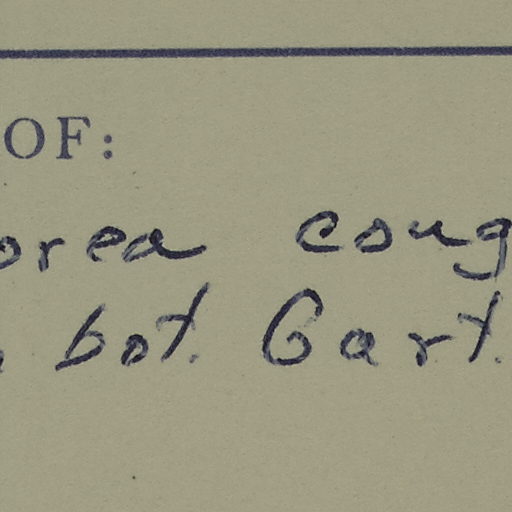 OF:
orea coug
bot. Gart.